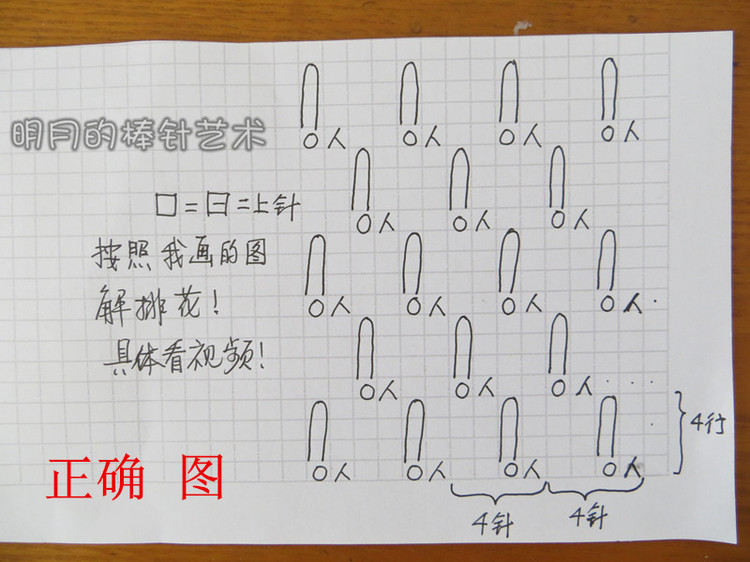 明月的棒针艺术
□=日=上针
按照我画的图
解排花！
具体看视频！
正确 图
O人 O人 O人 O人
O人 O人 O人
O人 O人 O人 O人
O人 O人 O人
O人 O人 O人 O人
4行
4针 4针